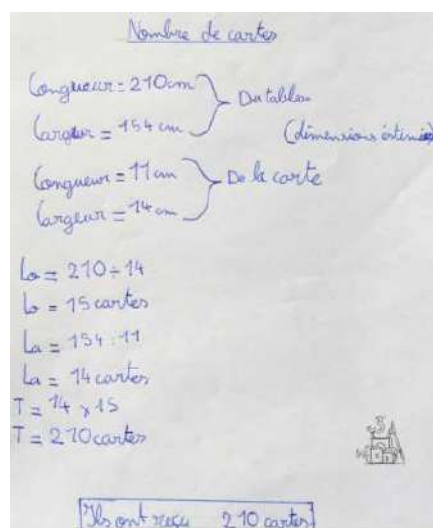 Nombre de cartes
Longueur = 210cm
Largeur = 154 cm
Du tableau
(dimensions
Longueur = 11 cm
Largeur = 14 cm
De la carte
Lo = 210 ÷ 14
Lo = 15 cartes
La = 154 : 11
La = 14 cartes
T = 14 x 15
T = 210 cartes
Ils ont reçu 210 cartes